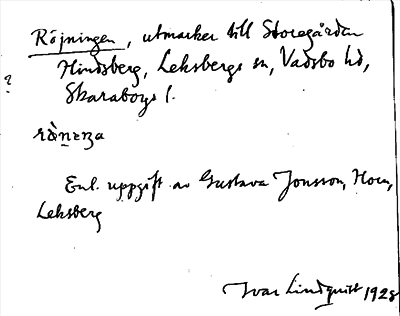 Röjningen, utmarker till Storegården
Hindsberg, Leksbergs sn, Vadsbo hd,
?
Skaraborgs l.
rànɩŋa
Enl. uppgift av Gustava Jonsson, Horn,
Leksberg
Ivar Lindquist 1928